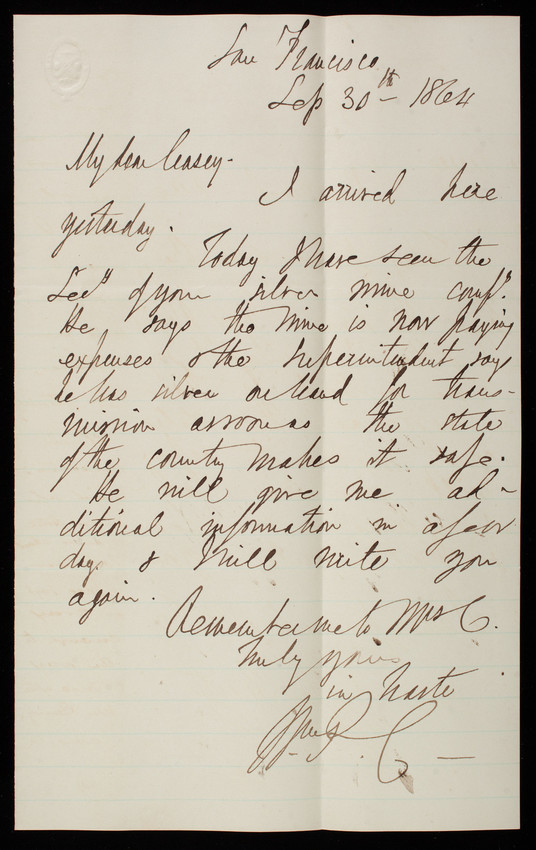 San Francisco
Sep 30th - 1864
My dear Casey -
I arrived here
yesterday.
Today I have seen the
Secy of your silver mine compy.
He says the mine is now paying
expenses & the superintendent says
he has silver on hand for trans-
mission as soon as the state
of the country makes it safe.
He will give me ad-
ditional information in a few
days & I will write you
again.
Remember me to Mrs C.
Truly yours
in haste